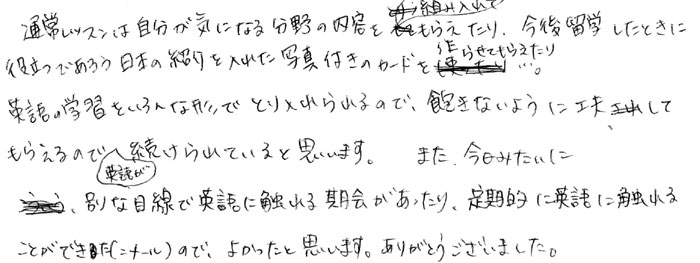 通常レッスンは自分が気になる分野の内容を組み入れてもらえたり、今後留学したときに
役立つであろう日本の紹介を入れた写真付きのカードを作らせてもらえたり…。
英語の学習をいろんな形でとり入れられるので、飽きないように工夫して
もらえるので英語が続けられていると思います。 また、今日みたいに
、別な目線で英語に触れる期会があったり、定期的に英語に触れる
ことができた(ニナール)ので、よかったと思います。ありがとうございました。